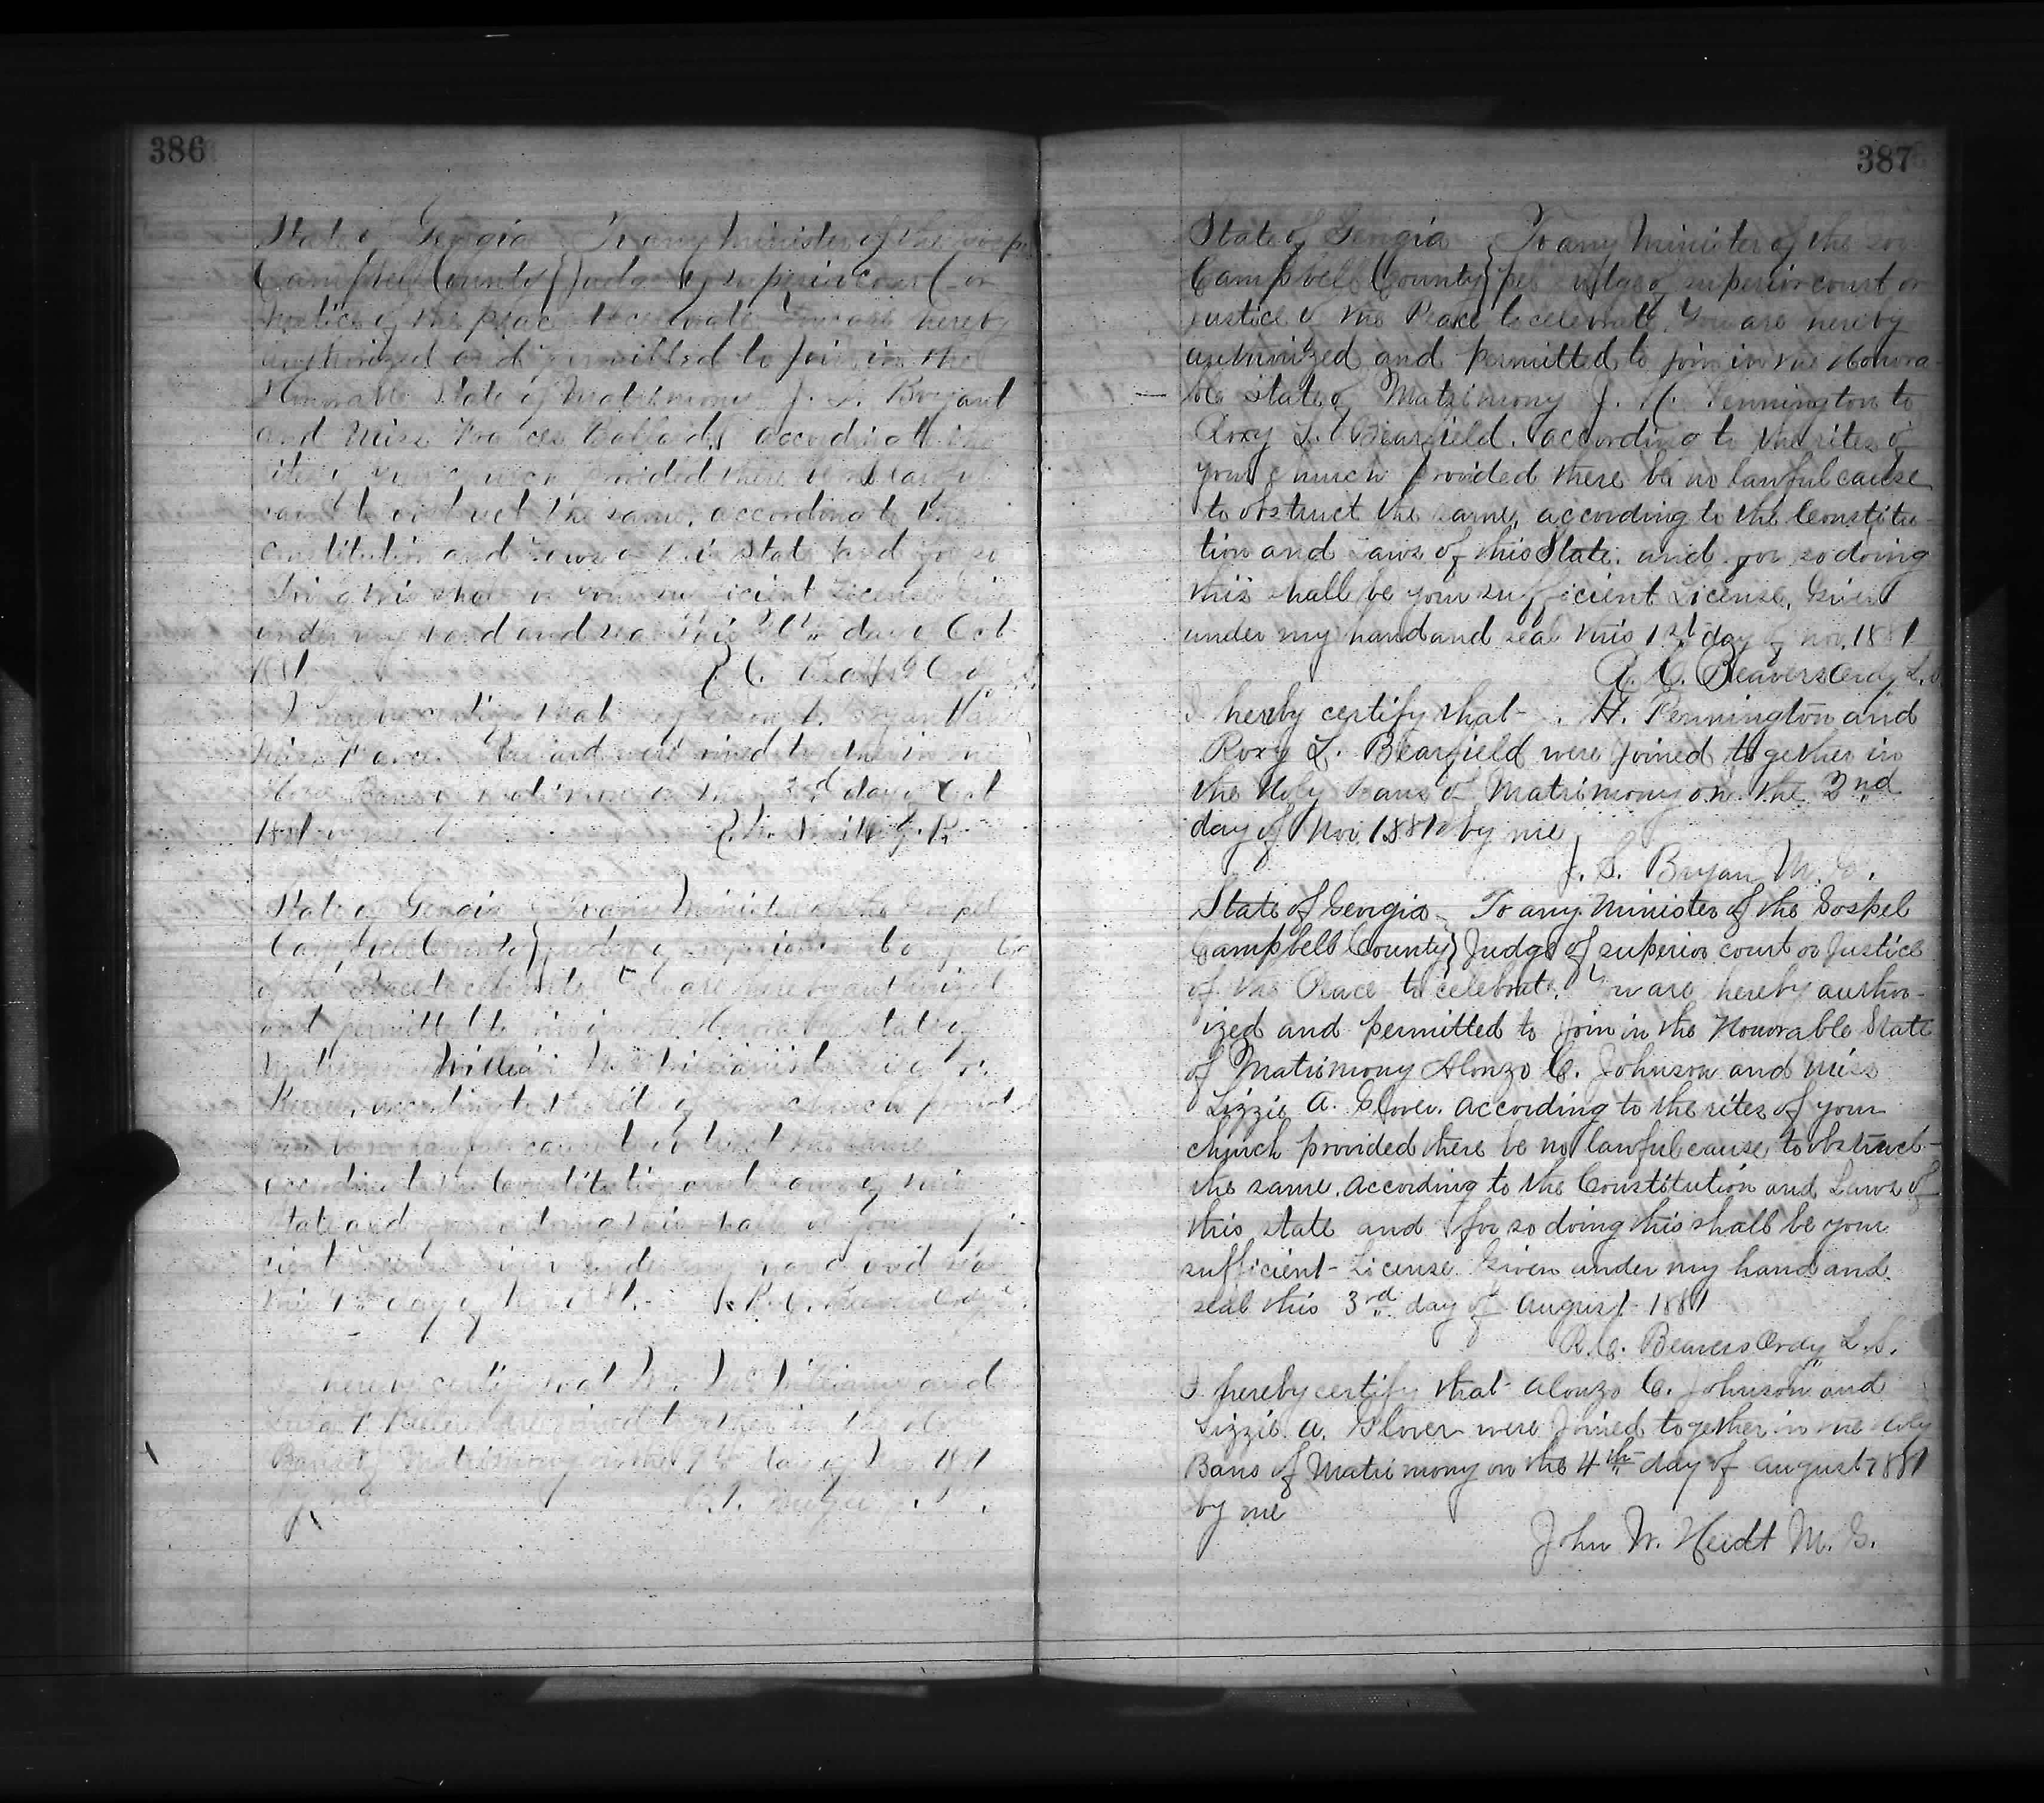 386
State of Georgia } To any Minister of the Gosp
Campbell County } Judge of superior court or
Justice of the peace to celebrate You are hereby
authorized and permitted to join in the
Honorable State of Matrimony J. T. Bryant
and Miss Frances Ballard, according to the
rites of your church provided there be no lawful
cause to obstruct the same, according to the
constitution and Laws of this State and for so
doing this shall be your sufficient License Given
under my hand and seal this day of Oct
1881 R. C. Beavers Ordy
I hereby certify that Jefferson T. Bryant and
Miss Frances Ballard were joined together in the
Bans of matrimony on the day of Oct
1881 by me Smith J. P.
State of Georgia } To any Minister of the Gospel
Campbell County } Judge of superior court or
of the Peace to celebrate You are hereby authorized
and permitted to join in the Honorable State of
Matrimony William McWilliams to
according to the rites of your church provided
there be no lawful cause to obstruct the same
according to the Constitution and Laws of this
State and for so doing this shall be your suffi-
cient License Given under my hand and seal
this 9th day of 1881. R. C. Beavers Ordy
I hereby certify that Wm. McWilliams and
were joined together in the
Bans of Matrimony on the 9th day of 1881
by me
387
State of Georgia } To any Minister of the Gos-
Campbell County } pel Judge of superior court or
justice of the Peace to celebrate. You are hereby
authorized and permitted to join in the Honora-
ble state of Matrimony J. H. Pennington to
Roxy L. Bearfield. according to the rites of
your church provided there be no lawful cause
to obstruct the same, according to the Constitu-
tion and Laws of this State. and for so doing
this shall be your sufficient License, Given
under my hand and seal this 1st day of Nov. 1881
R. C. Beavers Ordy L.S
I hereby certify that . H. Pennington and
Roxy L. Bearfield were joined together in
the Holy Bans of Matrimony on the 2nd
day of Nov. 1881 by me
J. S. Bryan M. G.
State of Georgia } To any Minister of the Gospel
Campbell County } Judge of superior court or Justice
of the Peace to celebrate. You are hereby author-
ized and permitted to join in the Honorable State
of Matrimony Alonzo C. Johnson and Miss
Lizzie A. Glover. according to the rites of your
church provided there be no lawful cause, to obstruct-
the same. according to the Constitution and Laws of
this state and for so doing this shall be your
sufficient License Given under my hand and
seal this 3rd day of August 1881
R. C. Beavers Ordy L.S.
I hereby certify that Alonzo C. Johnson and
Lizzie A. Glover were joined together in the Holy
Bans of Matrimony on the 4th day of August 1881
by me
John W. Heidt M. G.